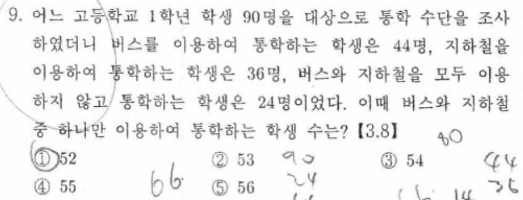 9. 어느 고등학교 1학년 학생 90명을 대상으로 통학 수단을 조사
하였더니 버스를 이용하여 통학하는 학생은 44명, 지하철을
이용하여 통학하는 학생은 36명, 버스와 지하철을 모두 이용
하지 않고 통학하는 학생은 24명이었다. 이때 버스와 지하철
중 하나만 이용하여 통학하는 학생 수는? 【3.8】
80
① 52 ② 53 90 ③ 54 44
④ 55 66 ⑤ 56 24 36
14